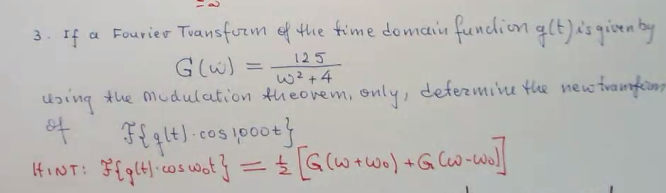 3. If a Fourier Transform of the time domain function g(t) is given by
G(ω) = 125 / ω² + 4
using the modulation theorem, only, determine the new transform
of F{g(t)·cos1,000t}
HINT: F{g(t)·cosω₀t} = ½ [G(ω+ω₀) + G(ω-ω₀)]